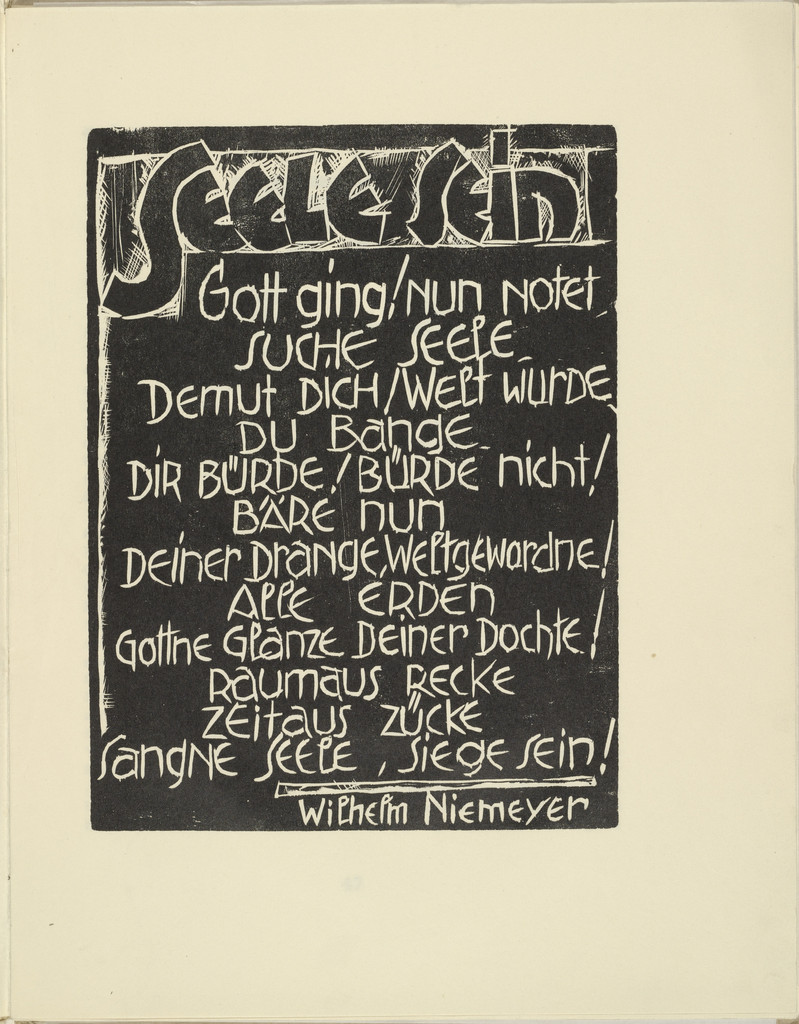 Seele sein
Gott ging! nun notet
SUCHE SEELE
Demut DICH! Welt wurde
DU Bange
DIR BÜRDE! BÜRDE nicht!
BÄRE nun
Deiner Drange, Weltgewordne!
Alle ERDEN
Gottne Glanze Deiner Dochte!
Raumaus RECKE
Zeitaus ZÜCKE
Sangne Seele, Siege sein!
Wilhelm Niemeyer